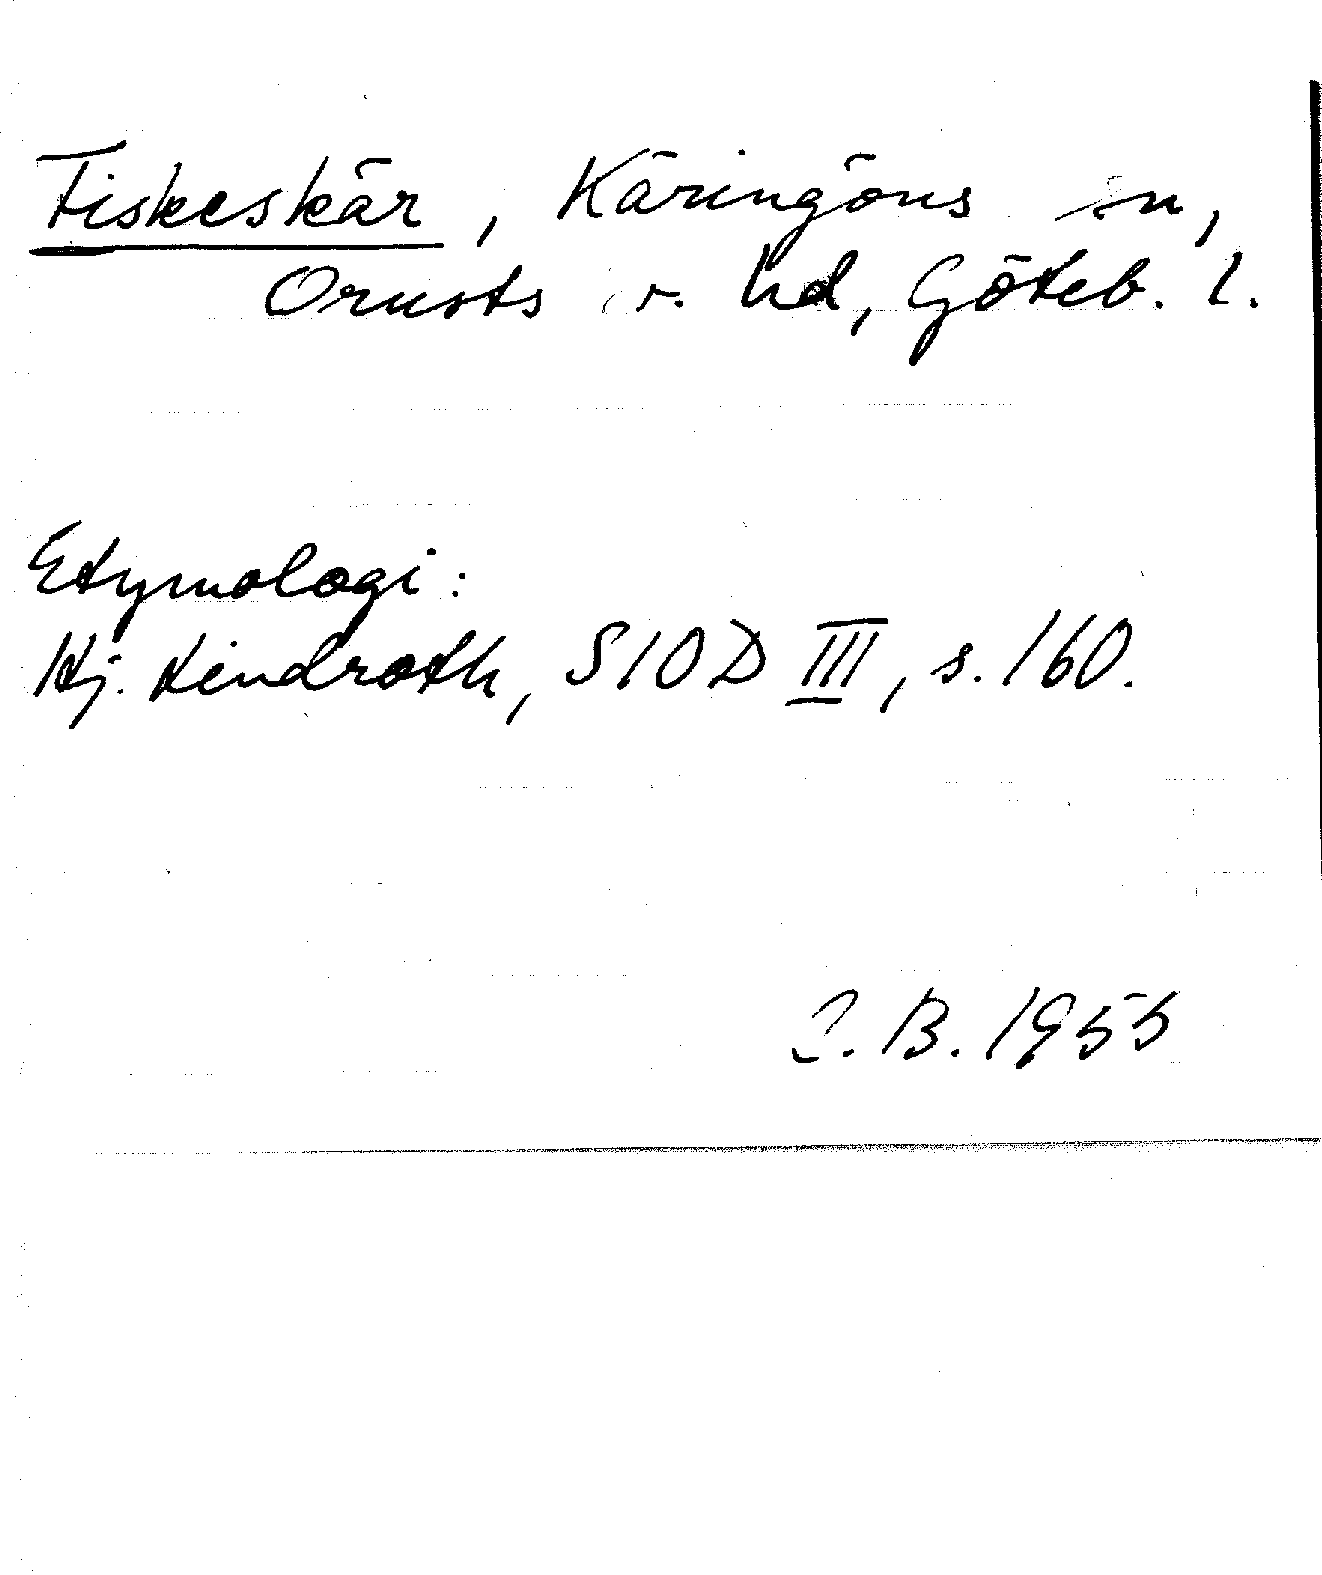 Fiskeskär, Käringöns sn,
Orusts v. hd, Göteb. l.
Etymologi:
Hj. Lindroth, SIOD III, s. 160.
B. 1955